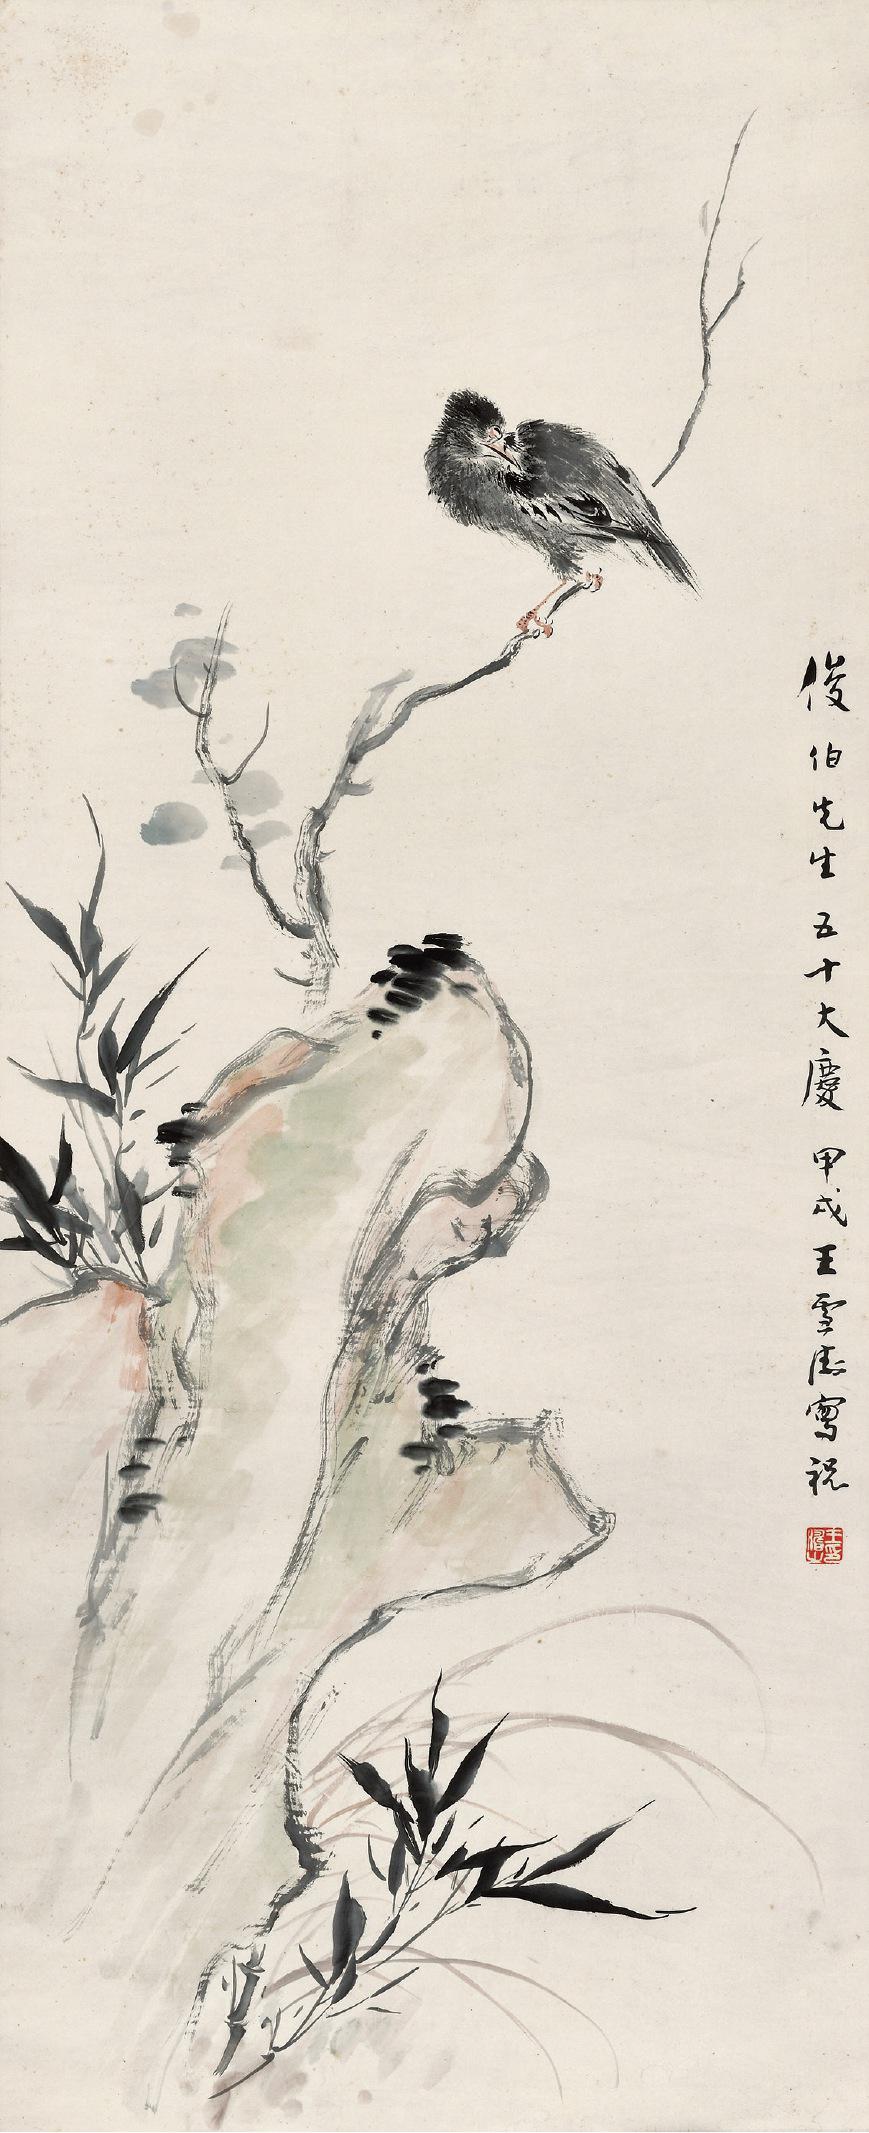 俊伯先生五十大慶甲戌王雪濤寫祝